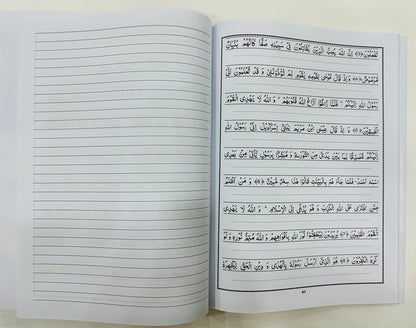 تَفْعَلُوْنَ ﴿3﴾ اِنَّ اللّٰهَ يُحِبُّ الَّذِيْنَ يُقَاتِلُوْنَ فِيْ سَبِيْلِهٖ صَفًّا كَاَنَّهُمْ بُنْيَانٌ
مَّرْصُوْصٌ ﴿4﴾ وَ اِذْ قَالَ مُوْسٰى لِقَوْمِهٖ يٰقَوْمِ لِمَ تُؤْذُوْنَنِيْ وَ قَدْ تَّعْلَمُوْنَ اَنِّيْ
رَسُوْلُ اللّٰهِ اِلَيْكُمْ ؕ فَلَمَّا زَاغُوْۤا اَزَاغَ اللّٰهُ قُلُوْبَهُمْ ؕ وَ اللّٰهُ لَا يَهْدِي الْقَوْمَ
الْفٰسِقِيْنَ ﴿5﴾ وَ اِذْ قَالَ عِيْسَى ابْنُ مَرْيَمَ يٰبَنِيْۤ اِسْرَآءِيْلَ اِنِّيْ رَسُوْلُ اللّٰهِ
اِلَيْكُمْ مُّصَدِّقًا لِّمَا بَيْنَ يَدَيَّ مِنَ التَّوْرٰىةِ وَ مُبَشِّرًۢا بِرَسُوْلٍ يَّاْتِيْ مِنْۢ بَعْدِي
اسْمُهٗۤ اَحْمَدُ ؕ فَلَمَّا جَآءَهُمْ بِالْبَيِّنٰتِ قَالُوْا هٰذَا سِحْرٌ مُّبِيْنٌ ﴿6﴾ وَ مَنْ اَظْلَمُ
مِمَّنِ افْتَرٰى عَلَى اللّٰهِ الْكَذِبَ وَ هُوَ يُدْعٰۤى اِلَى الْاِسْلَامِ ؕ وَ اللّٰهُ لَا يَهْدِي
الْقَوْمَ الظّٰلِمِيْنَ ﴿7﴾ يُرِيْدُوْنَ لِيُطْفِـُٔوْا نُوْرَ اللّٰهِ بِاَفْوَاهِهِمْ وَ اللّٰهُ مُتِمُّ نُوْرِهٖ وَ لَوْ
كَرِهَ الْكٰفِرُوْنَ ﴿8﴾ هُوَ الَّذِيْۤ اَرْسَلَ رَسُوْلَهٗ بِالْهُدٰى وَ دِيْنِ الْحَقِّ لِيُظْهِرَهٗ